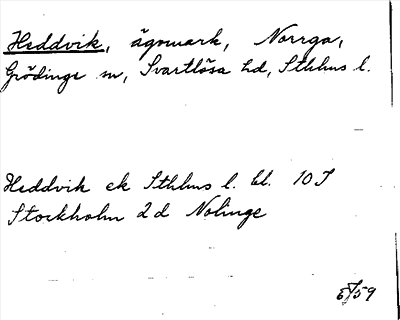 Heddvik, ägomark, Norrga,
Grödinge sn, Svartlösa hd, Sthlms l.
Heddvik ek Sthlms l. bl. 10 I
Stockholm 2 d Nolinge